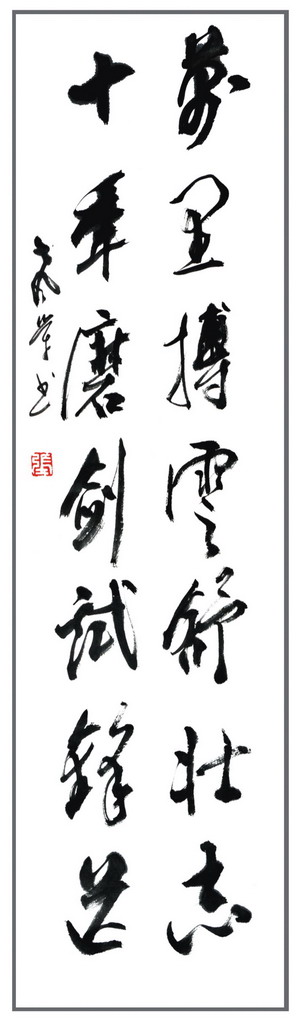 萬里搏雲舒壯志
十年磨劍試鋒芒